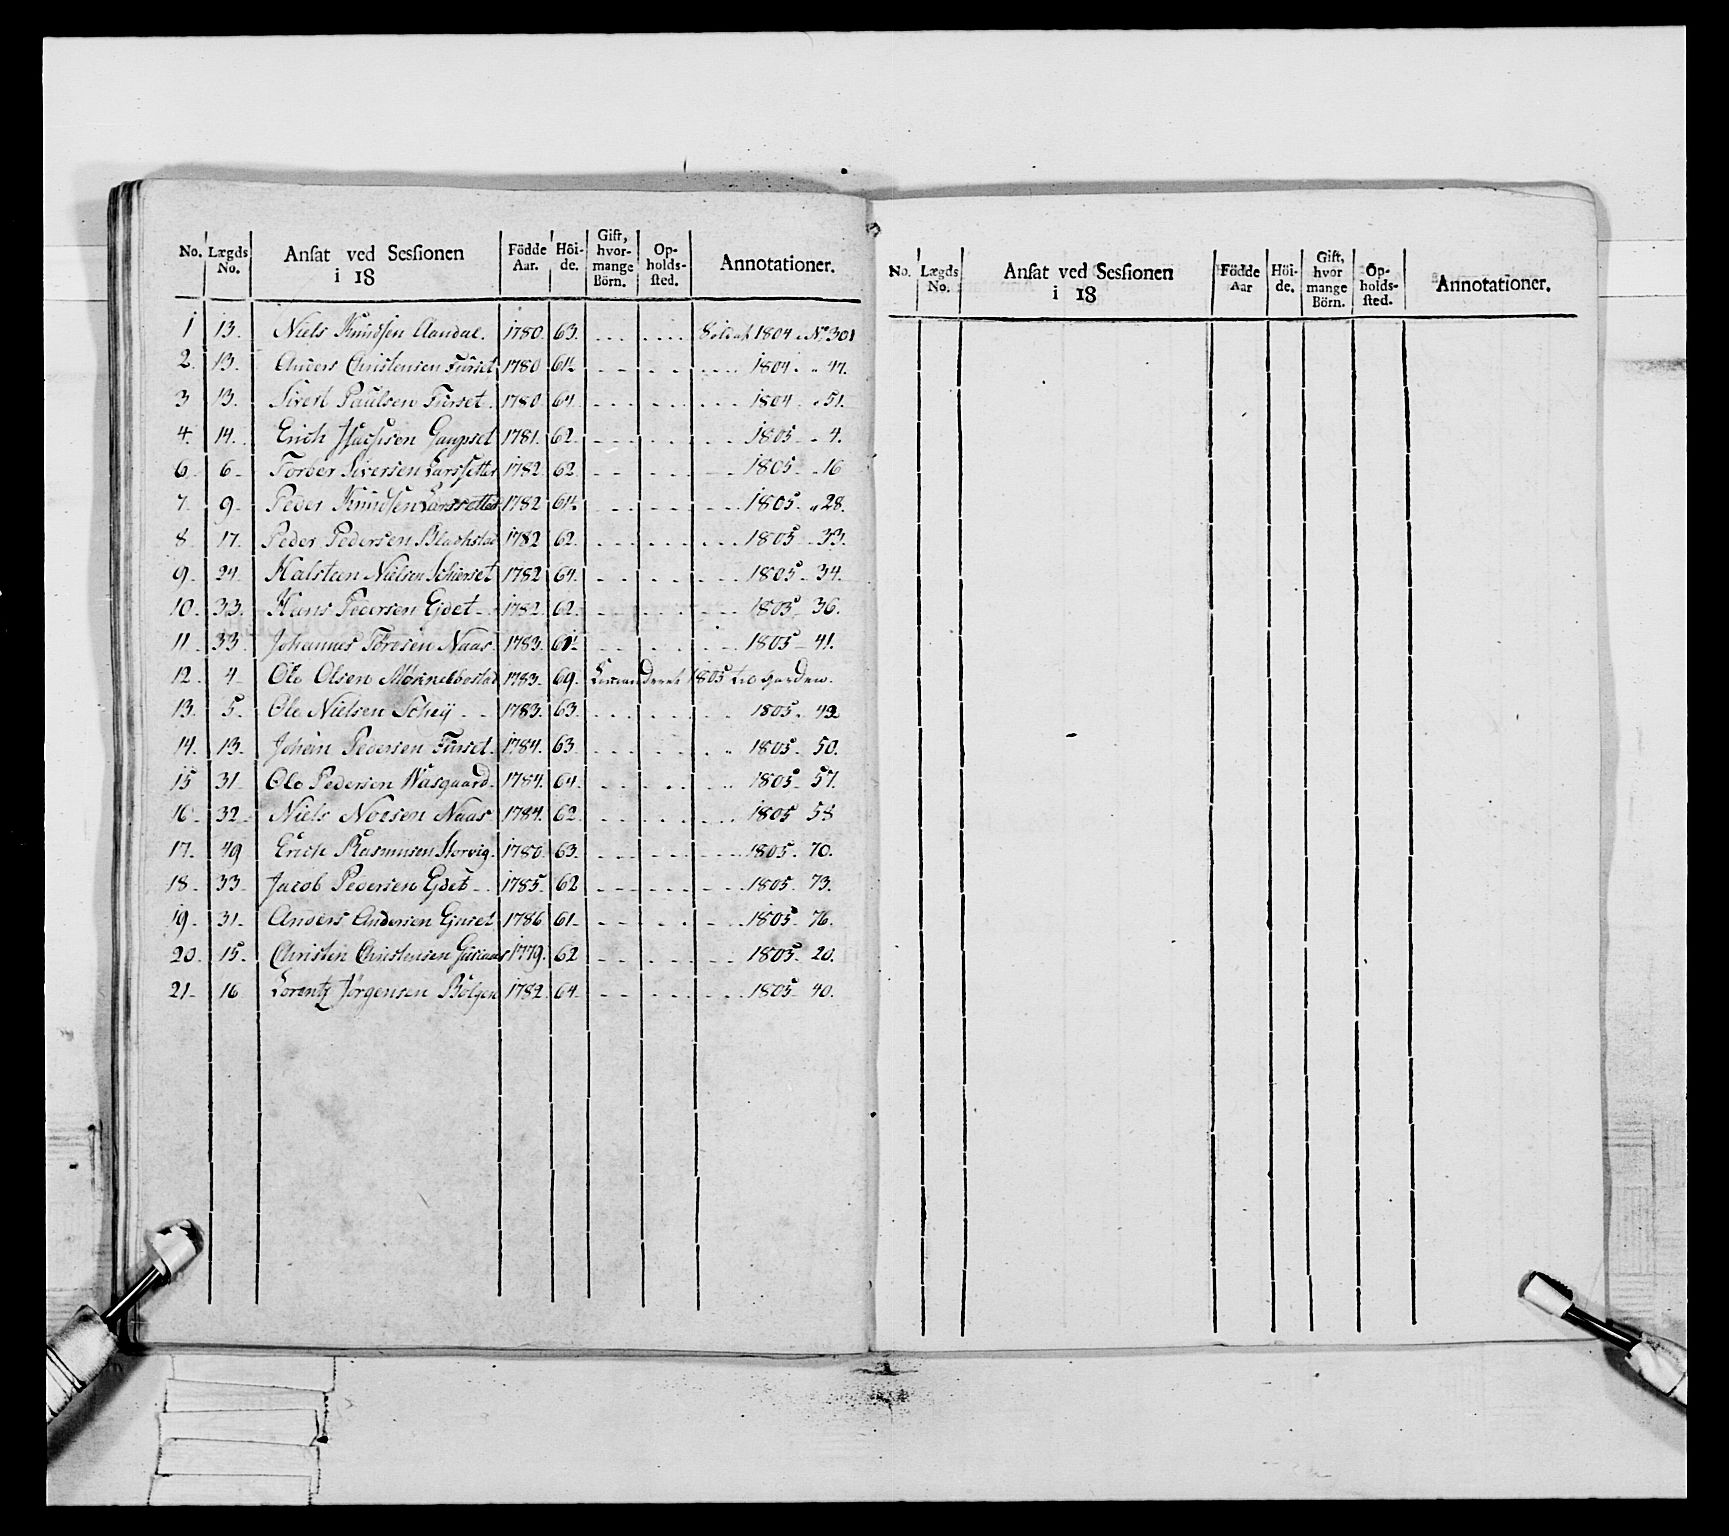 No. Lægds No. Ansat ved Sessionen i 18 Födde Aar. Höi-de. Gift, hvor-mange Börn. Op-holds-sted. Annotationer.
1 13. Niels Knudsen Aandal. 1780. 63. Soldat 1804 No 30
2. 13. Anders Christensen Furset 1780 1804 47.
3 13. Sivert Paulsen Furset. 1780 64. 1804 51.
4. 14. Erich Gaupset 1781. 62. 1805 4.
6. 6. Siversen Larssetter 1782 62 1805. 16
7. 9. Peder Knudsen Larssetter 1782 1805. 28.
8. 17. Peder Pedersen Blachstad 1782 62. 1805 33.
9. 24. Halsteen Nielsen 1782 64. 1805. 34.
10. 33. Hans Pedersen Ejdet 1782. 62. 1805 36.
11. 33. Johannes Toresen Naas 1783. 1805 41.
12. 4. Ole Olsen 1783. 69. 1805 garden.
13. 5. Ole Nielsen Scheij 1783. 63. 1805. 42
14. 13. Pedersen Furset. 1784. 63 1805. 50.
15 31. Ole Pedersen 1784. 64. 1805. 57.
16. 32. Niels Naas 1784. 62 1805 58
17. 49 Erich Rasmusen Storvig. 1780. 63. 1805. 70.
18. 33. Jacob Pedersen Ejdet 1785. 62 1805. 73.
19. 31. Anders Andersen 1786 61. 1805. 76.
20. 15. Christen Christensen 1779. 62 1805. 20.
21. 16 Lorentz Jörgensen Bolgen 1782. 64. 1805. 40.
No. Lægds No. Ansat ved Sessionen i 18 Födde Aar Höi-de. Gift, hvor mange Börn. Op-holds-sted. Annotationer.